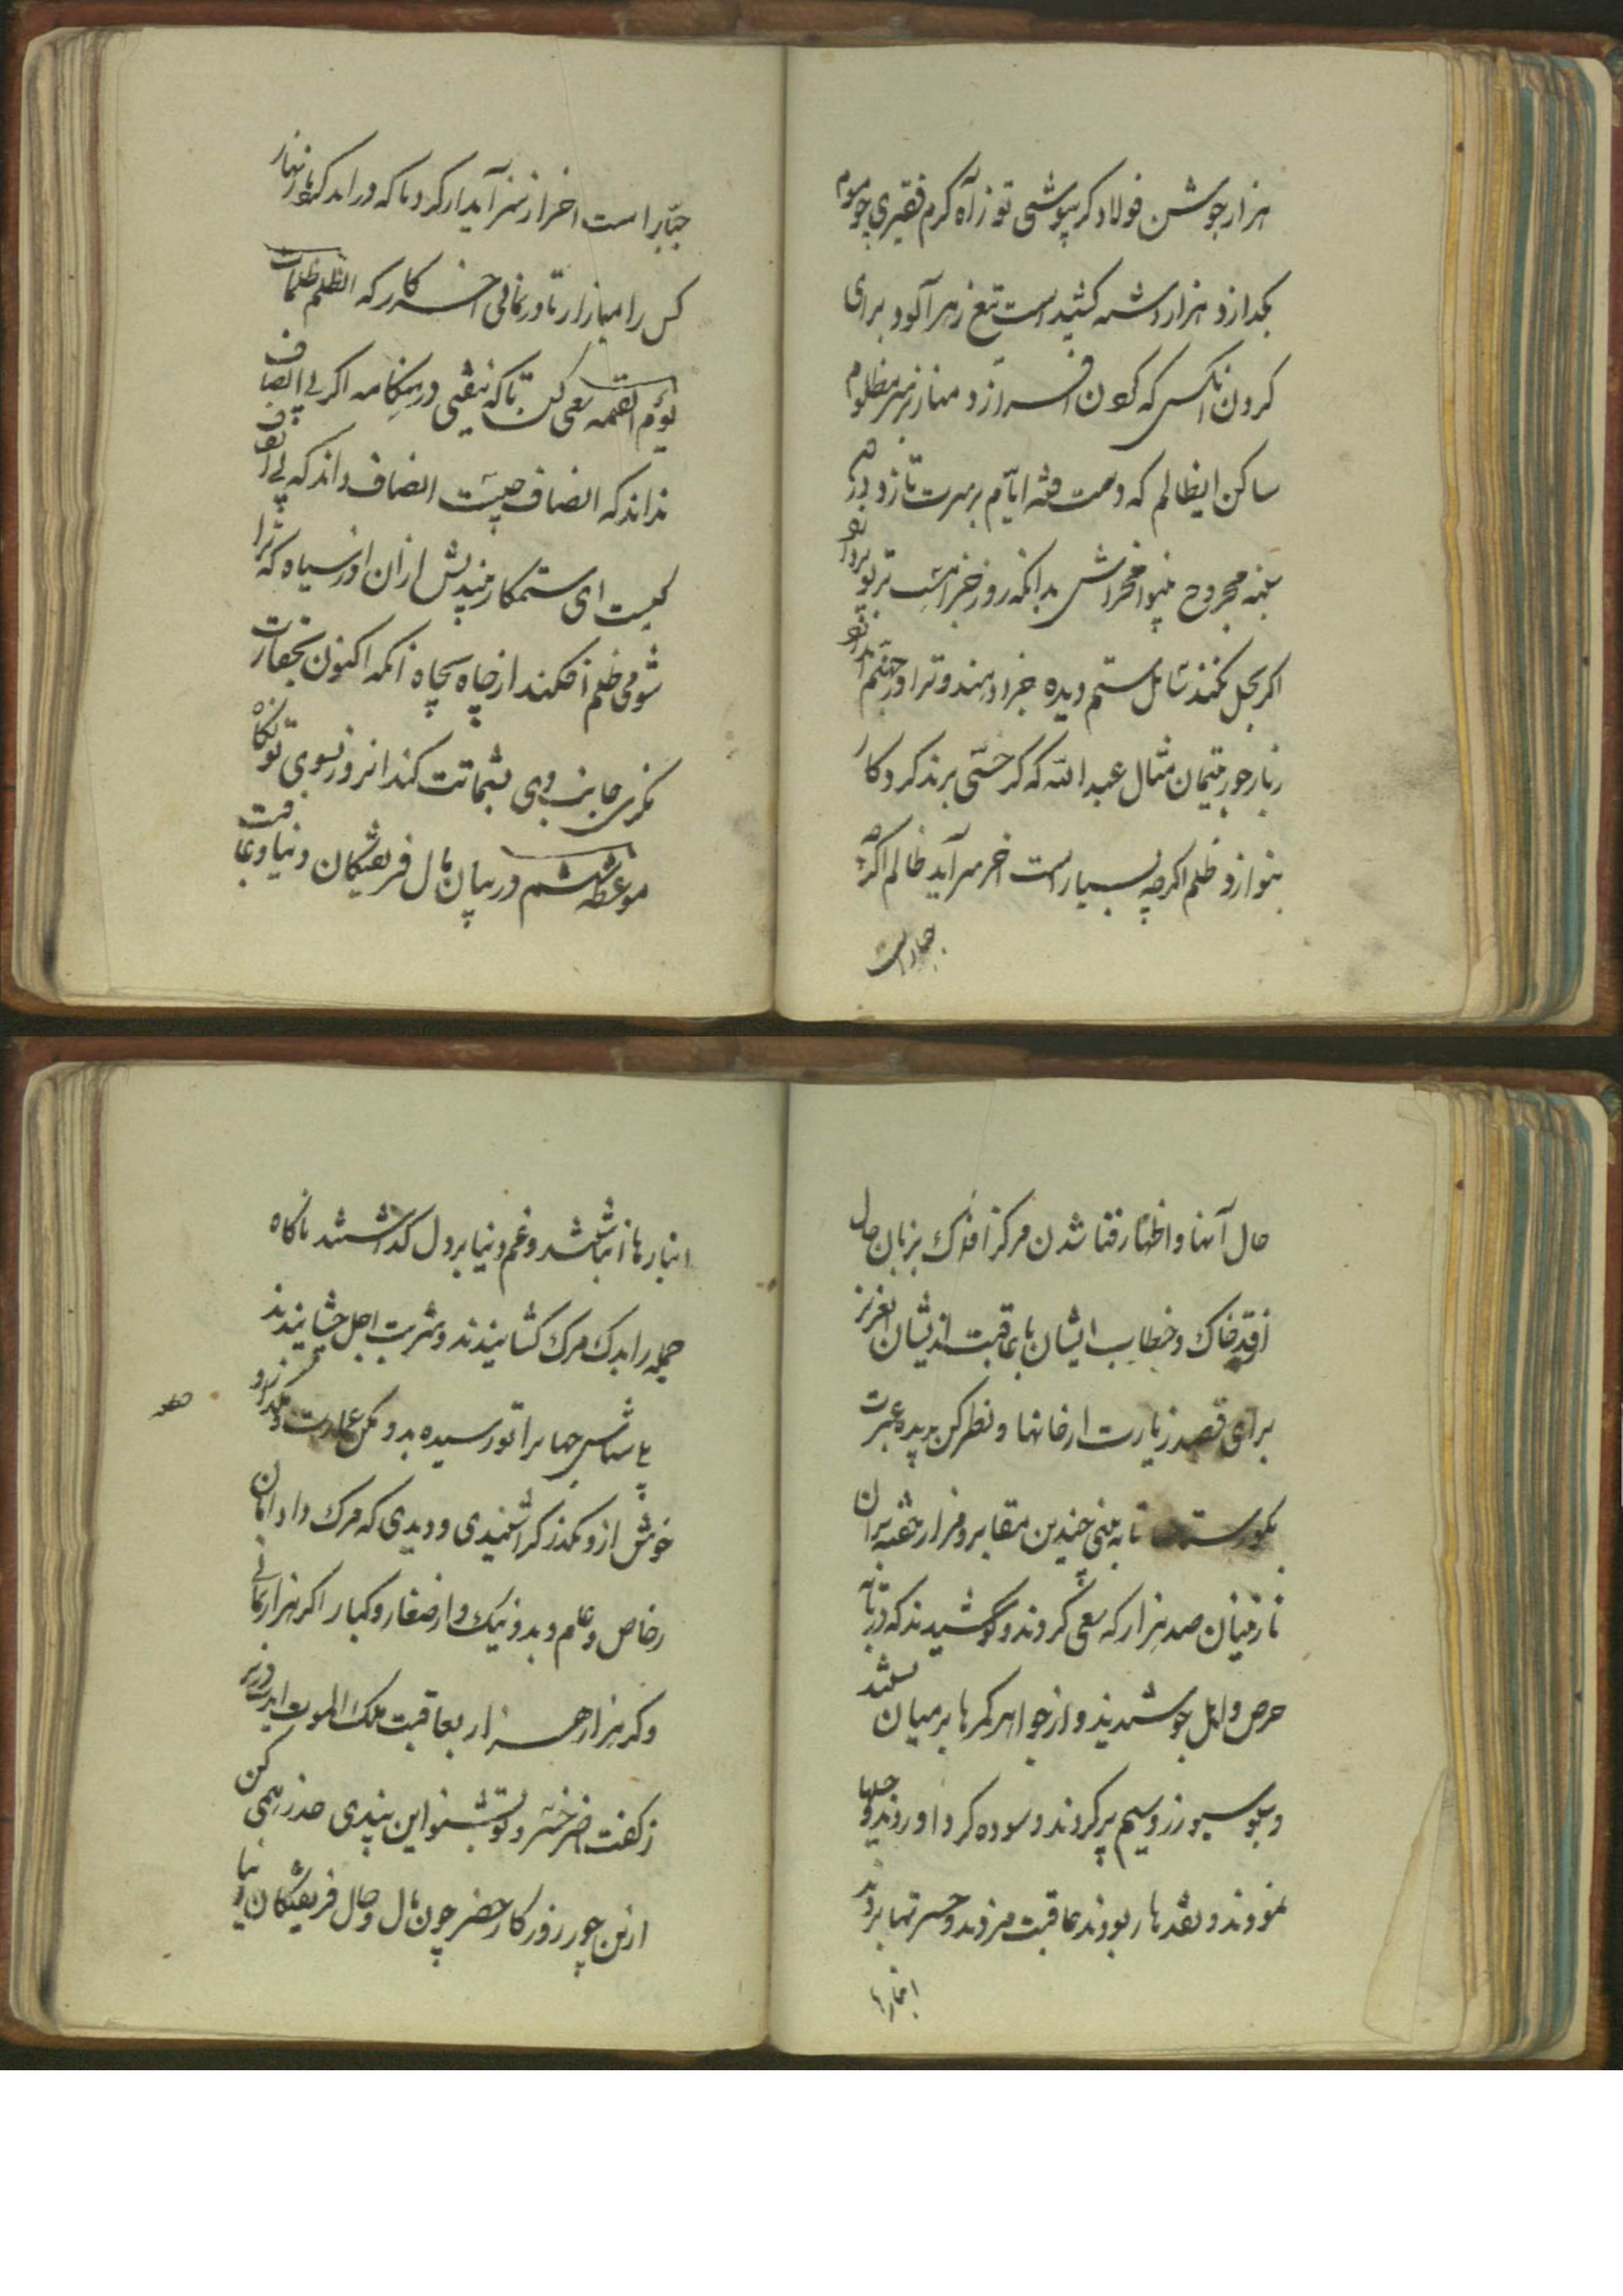 هزار جوشن فولاد کر بپوشی تو ز آه کرم فقیری چو موم
بکدازد هزار دشنه کشیدست تیغ زهرآلود برای
کردن انکس که کردن افرازد منه از سر مظلوم
ساکن ایظالم که دست فتنه ایام بر سرت تازد
سینه مجروح بینوا مخراش بدانکه روز جزا
اکر بحل نکند سایل ستم دیده جزا دهند و ترا در جهنم اندازد
زبار جور یتیمان مثال عبد الله که کر جستی برند کردکار
بنوازد ظلم اکرچه بسیار است اخر سر آید ظالم اکرچه
جبار است
جبار است اخر از سر آید ار کردنا که دراید کرد ازنهار
کس را میازار تا درنمانی اخر کار که الظلم ظلمات
یوم القیمه سعی کن تا که نیفتی در هنکامه اکر بی انصاف
نداند که انصاف چیست انصاف داند که بی انصاف
کیست ای ستمکار بیندیش ازان روز سیاه که ترا
شومی ظلم افکند از چاه بچاه انکه اکنون بحقارت
نکری جانب وی بشماتت کند انروز بسوی تو نکاه
موعظه ششم در بیان مال فریفتکان دنیا و عاقبت
حال آنها و اظهار فنا شدن مرکز افلاک بزبان حال
افتد خاک و خطاب ایشان با عاقبت اندیشان ای عزیز
برای قصد زیارت ارخانها و نظر کن بدیده عبرت
بکورستان تا به بینی چندین مقابر و مزار خفته بر ان
نازنینان صد هزار که سعی کردند و کوشیدند که در تابه
حرص و امل جوشیدند و از جواهر کمرها بر میان بستند
و سبو سبو زر و سیم پر کردند و سوده کرد اوردند و حیلها
نمودند و نقدها ربودند عاقبت مردند و حسرتها بردند
انبارها
انبارها انباشتند و غم دنیا بر دل کذاشتند ناکاه
جمله را بدک مرک کشانیدند و شربت اجل چشانیدند
جها برا تو رسیده بدو مکن عمارت و بکذار
خوش ازو بکذر کر اشنیدی و دیدی که مرک داد امان
ز خاص و عام و بد و نیک و از صغار و کبار اکر هزار بمانی
و کر هزار هزار بعاقبت ملک الموت
ز کفت خضر خسرو تو بشنو این پندی حذر همی کن
ازین جور روزکار خضر چون مال و حال فریفتکان دنیا